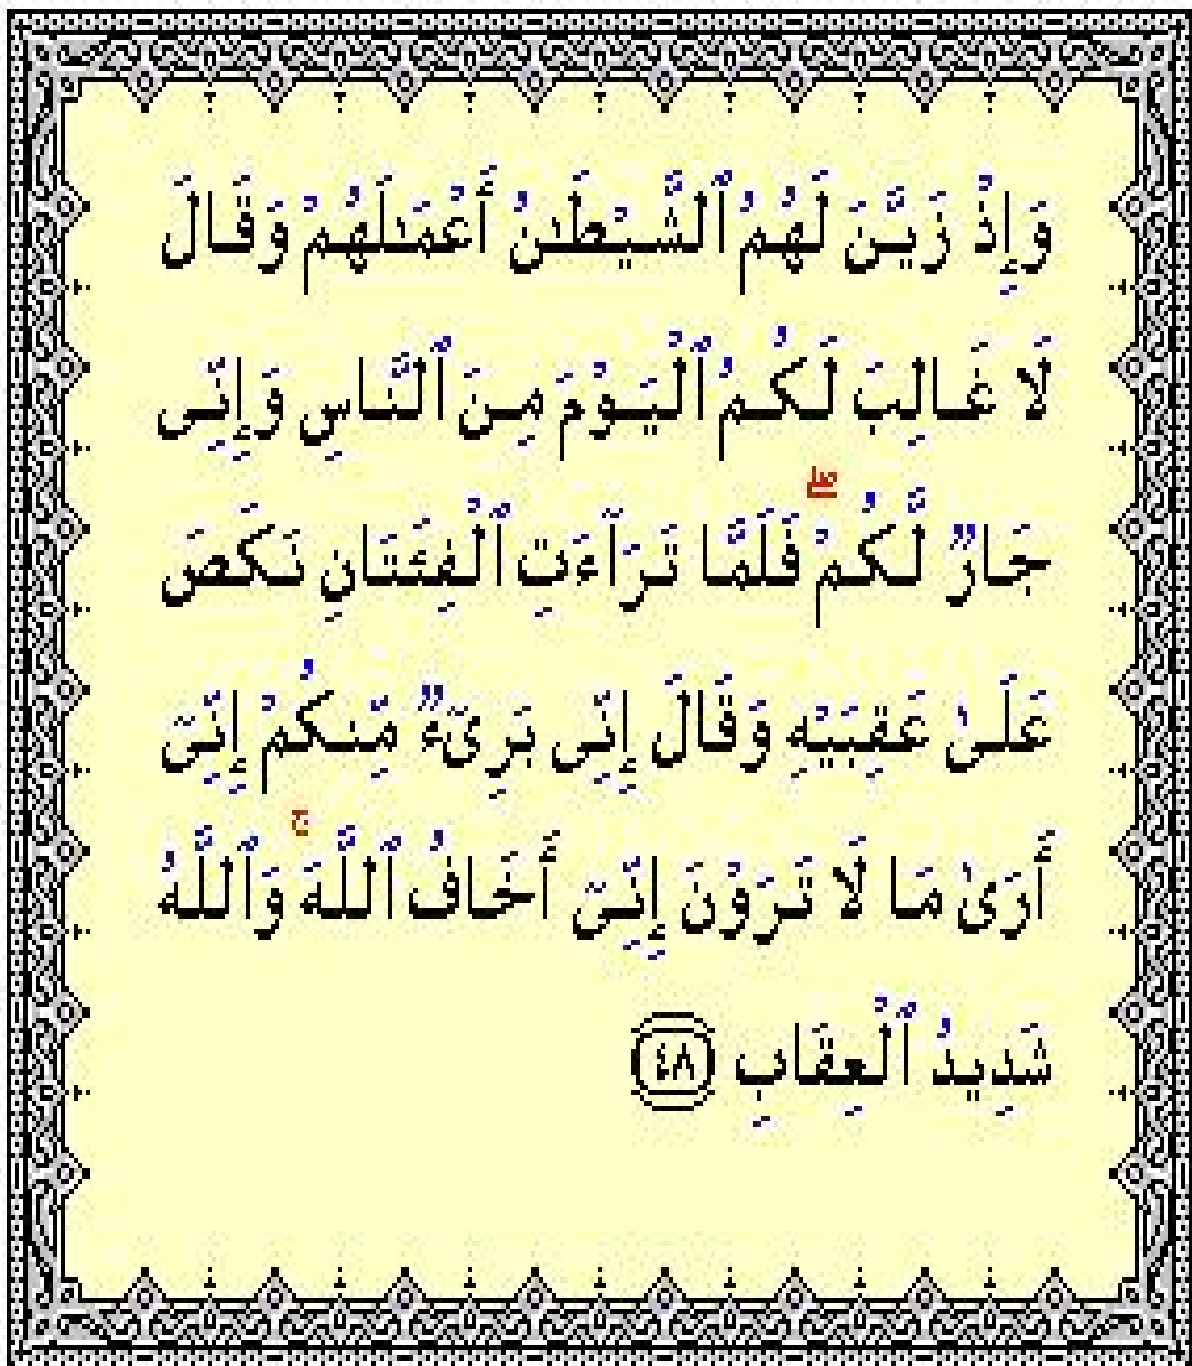 وَإِذْ زَيَّنَ لَهُمُ ٱلشَّيْطَٰنُ أَعْمَٰلَهُمْ وَقَالَ
لَا غَالِبَ لَكُمُ ٱلْيَوْمَ مِنَ ٱلنَّاسِ وَإِنِّى
جَارٌ لَّكُمْ ۖ فَلَمَّا تَرَآءَتِ ٱلْفِئَتَانِ نَكَصَ
عَلَىٰ عَقِبَيْهِ وَقَالَ إِنِّى بَرِىٓءٌ مِّنكُمْ إِنِّىٓ
أَرَىٰ مَا لَا تَرَوْنَ إِنِّىٓ أَخَافُ ٱللَّهَ ۚ وَٱللَّهُ
شَدِيدُ ٱلْعِقَابِ ٤٨